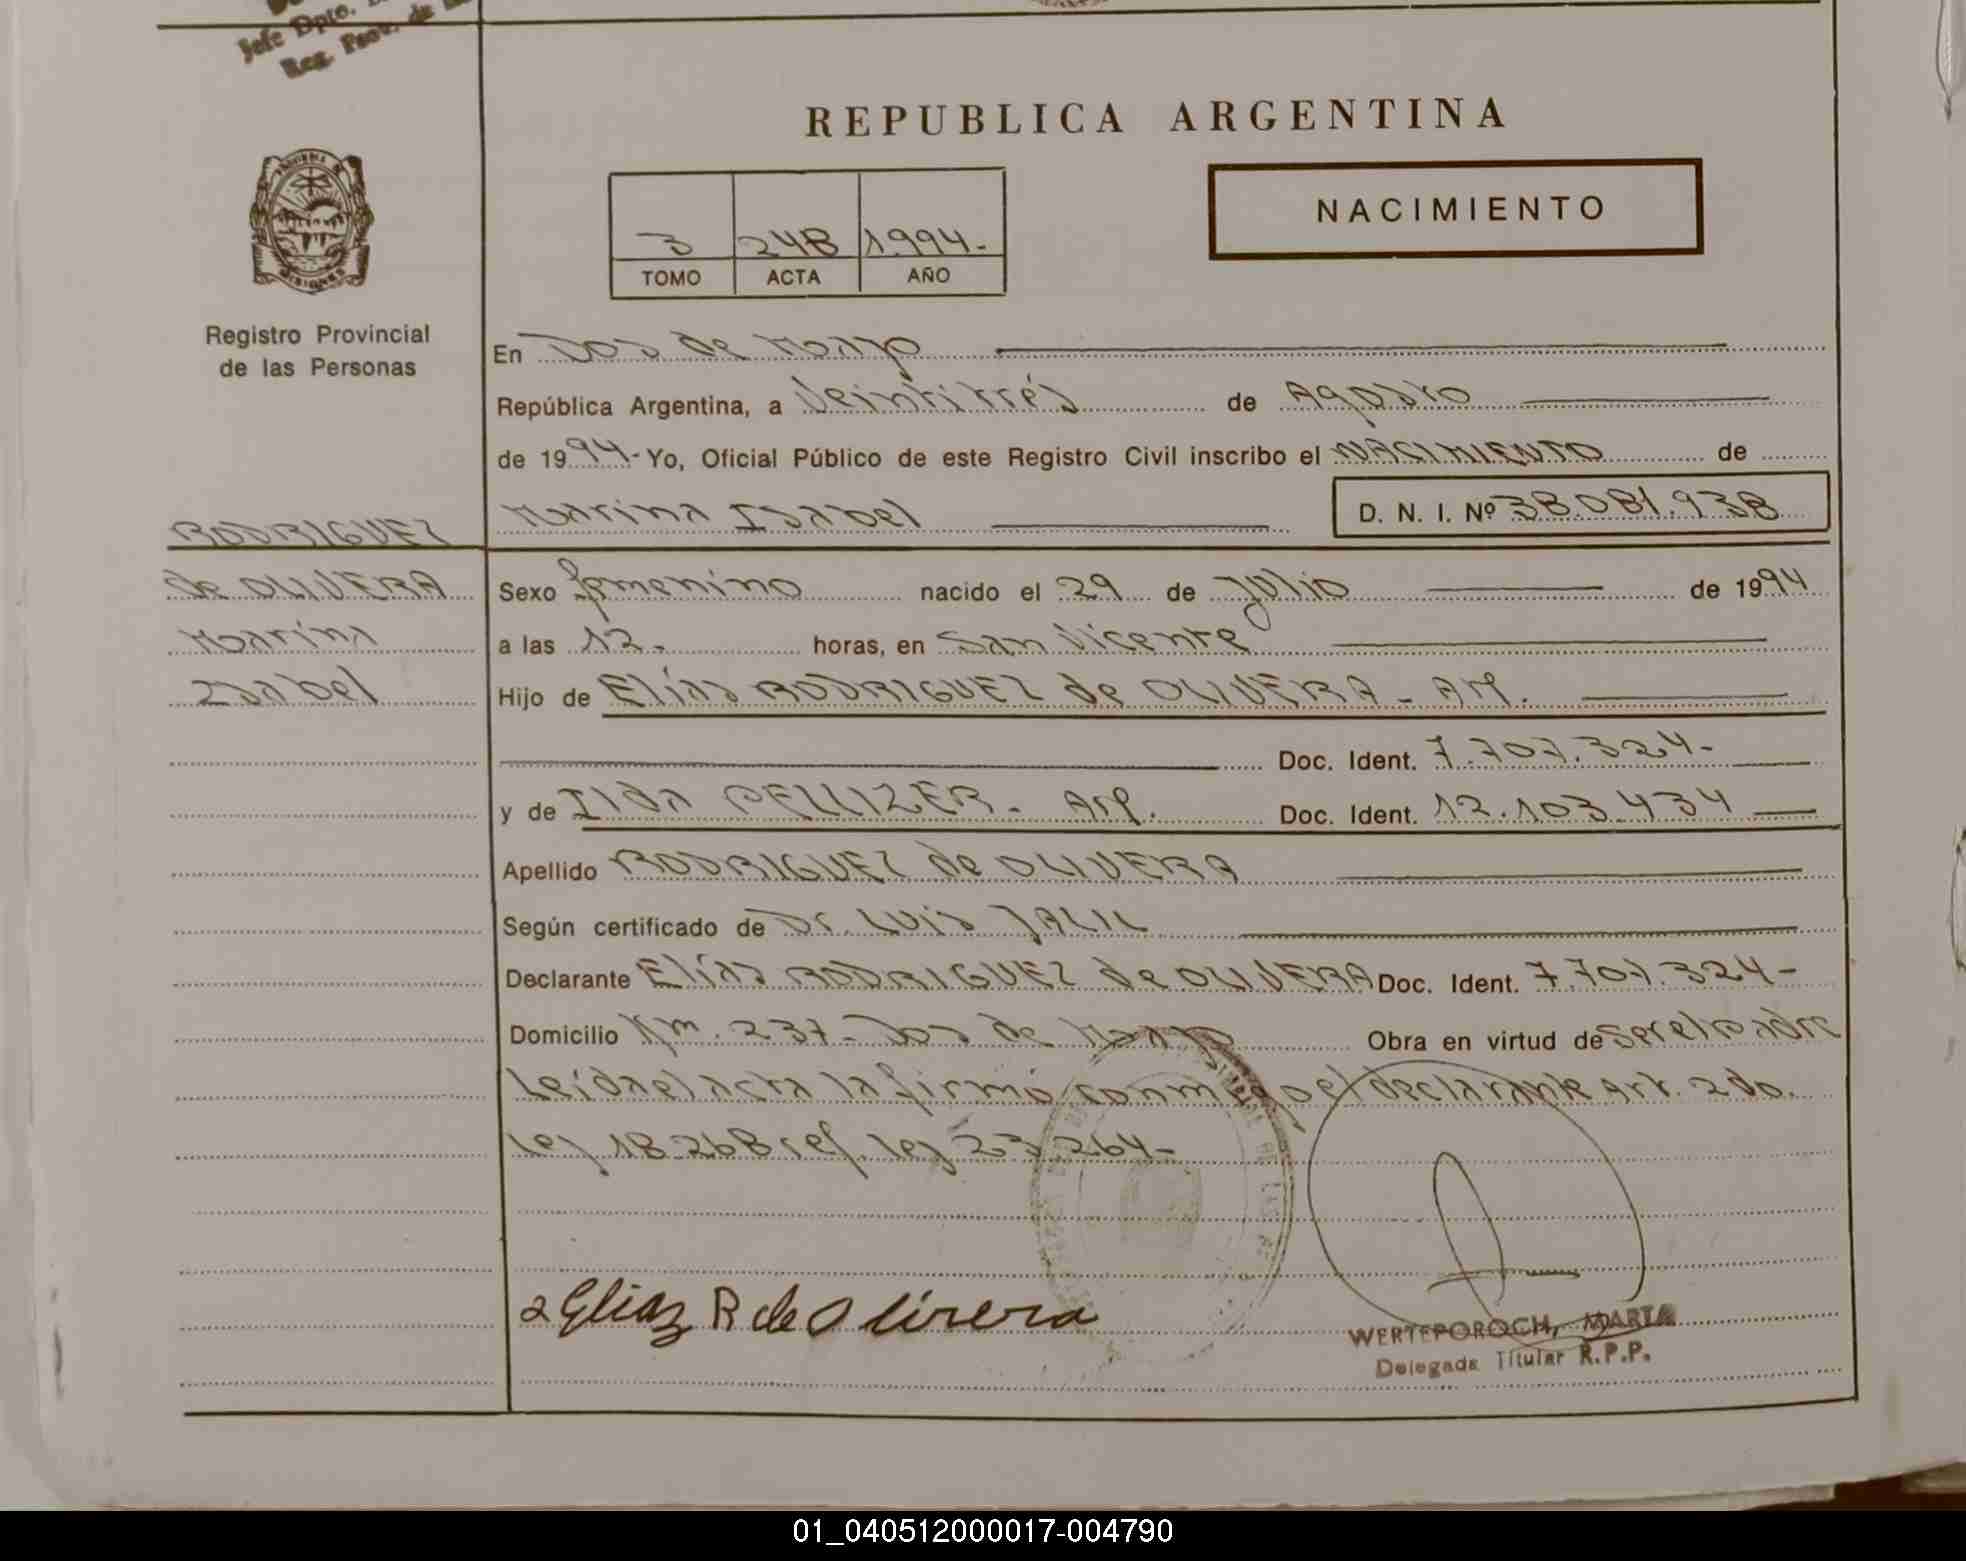 Jefe Dpto.
Reg. Prov. de
REPUBLICA ARGENTINA
NACIMIENTO
3 248 1.994.-
TOMO ACTA AÑO
MISIONES
Registro Provincial
de las Personas
En Dos de Mayo
República Argentina, a Veintitrés de Agosto
de 1994.- Yo, Oficial Público de este Registro Civil inscribo el NACIMIENTO de
Marina Isabel D. N. I. Nº 38.081.938
RODRIGUEZ
de OLIVERA
Marina
Isabel
Sexo femenino nacido el 29 de Julio de 1994
a las 12.- horas, en San Vicente
Hijo de Elías RODRIGUEZ de OLIVERA - Arg.
Doc. Ident. 7.707.324.-
y de Ilda PELLIZER.- Arg. Doc. Ident. 12.103.434
Apellido RODRIGUEZ de OLIVERA
Según certificado de Dr. LUIS JALIL
Declarante Elías RODRIGUEZ de OLIVERA Doc. Ident. 7.707.324-
Domicilio Km. 237- Dos de Mayo Obra en virtud de ser el padre
Leída el acta la firmó conmigo el declarante Art. 2do.
ley 18.268 ref. ley 23.264-
Eliaz R de Olivera
WERTEPOROCH, MARTA
Delegada Titular R.P.P.
01_040512000017-004790